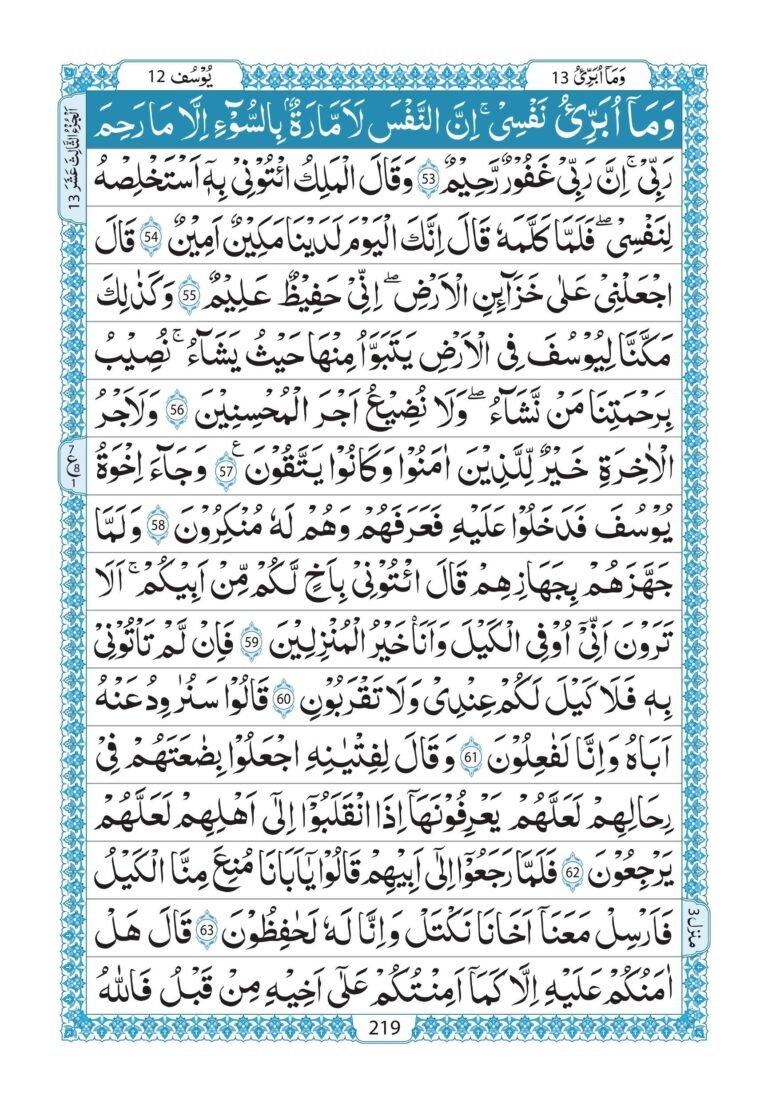 وَمَآ اُبَرِّئُ 13
يُوْسُف 12
اَلْجُزْءُ الثَّالِثَ عَشَرَ 13
وَمَآ اُبَرِّئُ نَفْسِيْ ۚ اِنَّ النَّفْسَ لَاَمَّارَةٌۢ بِالسُّوْٓءِ اِلَّا مَا رَحِمَ
رَبِّيْ ۚ اِنَّ رَبِّيْ غَفُوْرٌ رَّحِيْمٌ 53 وَقَالَ الْمَلِكُ ائْتُوْنِيْ بِهٖٓ اَسْتَخْلِصْهُ
لِنَفْسِيْ ۖ فَلَمَّا كَلَّمَهٗ قَالَ اِنَّكَ الْيَوْمَ لَدَيْنَا مَكِيْنٌ اَمِيْنٌ 54 قَالَ
اجْعَلْنِيْ عَلٰى خَزَآئِنِ الْاَرْضِ ۖ اِنِّيْ حَفِيْظٌ عَلِيْمٌ 55 وَكَذٰلِكَ
مَكَّنَّا لِيُوْسُفَ فِي الْاَرْضِ يَتَبَوَّاُ مِنْهَا حَيْثُ يَشَآءُ ۚ نُصِيْبُ
بِرَحْمَتِنَا مَنْ نَّشَآءُ ۖ وَلَا نُضِيْعُ اَجْرَ الْمُحْسِنِيْنَ 56 وَلَاَجْرُ
الْاٰخِرَةِ خَيْرٌ لِّلَّذِيْنَ اٰمَنُوْا وَكَانُوْا يَتَّقُوْنَ ع 57 وَجَآءَ اِخْوَةُ
7 ع 8 1
يُوْسُفَ فَدَخَلُوْا عَلَيْهِ فَعَرَفَهُمْ وَهُمْ لَهٗ مُنْكِرُوْنَ 58 وَلَمَّا
جَهَّزَهُمْ بِجَهَازِهِمْ قَالَ ائْتُوْنِيْ بِاَخٍ لَّكُمْ مِّنْ اَبِيْكُمْ ۚ اَلَا
تَرَوْنَ اَنِّيْٓ اُوْفِي الْكَيْلَ وَاَنَا خَيْرُ الْمُنْزِلِيْنَ 59 فَاِنْ لَّمْ تَاْتُوْنِيْ
بِهٖ فَلَا كَيْلَ لَكُمْ عِنْدِيْ وَلَا تَقْرَبُوْنِ 60 قَالُوْا سَنُرَاوِدُ عَنْهُ
اَبَاهُ وَاِنَّا لَفٰعِلُوْنَ 61 وَقَالَ لِفِتْيٰنِهِ اجْعَلُوْا بِضَاعَتَهُمْ فِيْ
رِحَالِهِمْ لَعَلَّهُمْ يَعْرِفُوْنَهَآ اِذَا انْقَلَبُوْٓا اِلٰٓى اَهْلِهِمْ لَعَلَّهُمْ
يَرْجِعُوْنَ 62 فَلَمَّا رَجَعُوْٓا اِلٰٓى اَبِيْهِمْ قَالُوْا يٰٓاَبَانَا مُنِعَ مِنَّا الْكَيْلُ
فَاَرْسِلْ مَعَنَآ اَخَانَا نَكْتَلْ وَاِنَّا لَهٗ لَحٰفِظُوْنَ 63 قَالَ هَلْ
منزل 3
اٰمَنُكُمْ عَلَيْهِ اِلَّا كَمَآ اَمِنْتُكُمْ عَلٰٓى اَخِيْهِ مِنْ قَبْلُ فَاللّٰهُ
219